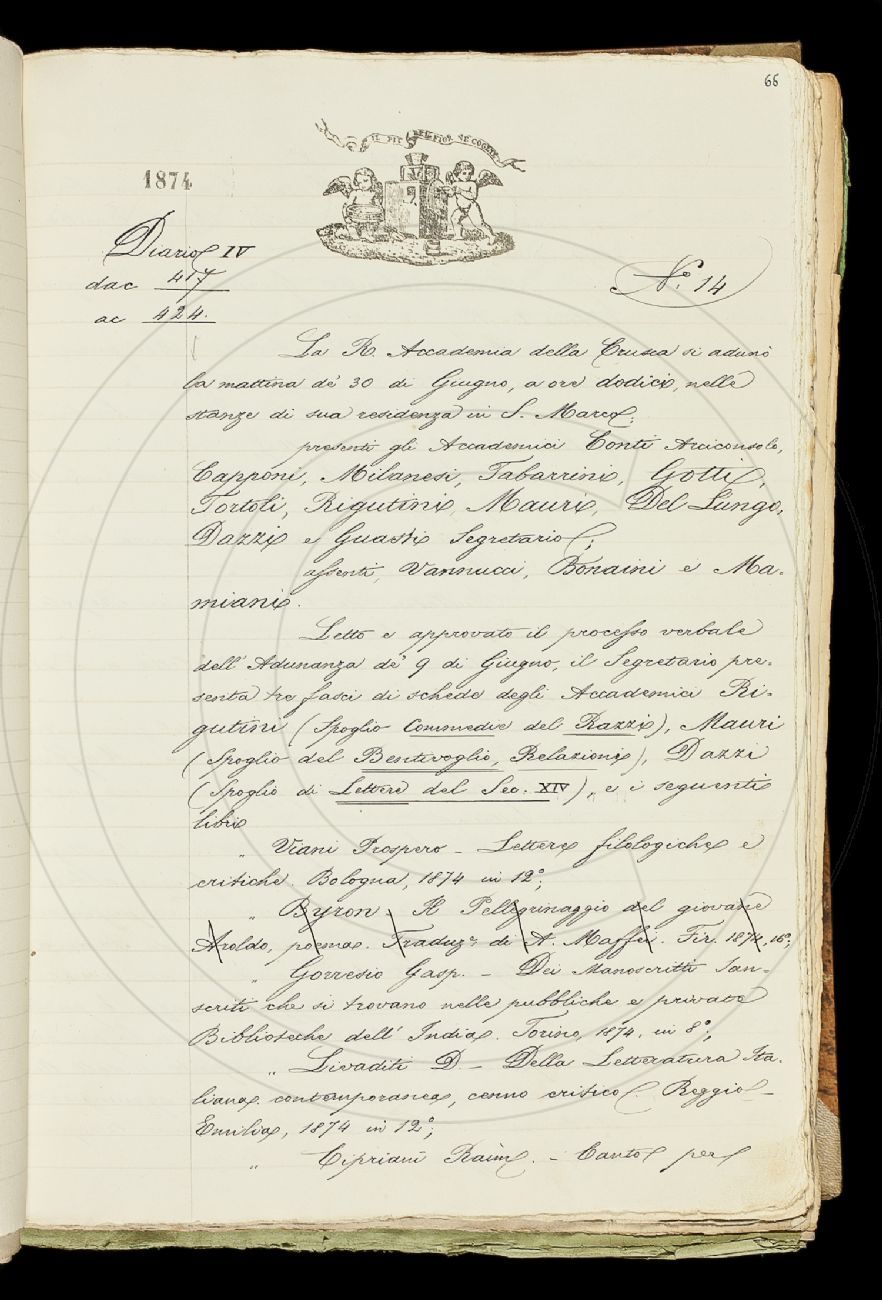 66
IL PIÙ BEL FIOR NE COGLIE
1874
Diario IV
da c 417
a c 424.
N.° 14
La R. Accademia della Crusca si adunò
la mattina de' 30 di Giugno, a ore dodici, nelle
stanze di sua residenza in S. Marco;
presenti gli Accademici Conti Arciconsolo,
Capponi, Milanesi, Tabarrini, Gotti,
Tortoli, Rigutini, Mauri, Del Lungo,
Dazzi e Guasti Segretario;
assenti, Vannucci, Bonaini e Ma-
miani.
Letto e approvato il processo verbale
dell' Adunanza de' 9 di Giugno, il Segretario pre-
senta tre fasci di schede degli Accademici Ri-
gutini (Spoglio Commedie del Razzi), Mauri
(Spoglio del Bentivoglio, Relazioni), Dazzi
(Spoglio di Lettere del Sec. XIV), e i seguenti
libri
„ Viani Prospero – Lettere filologiche e
critiche. Bologna, 1874 in 12°;
„ Byron. Il Pellegrinaggio del giovane
Aroldo, poema. Traduz.e di A. Maffei. Fir. 1874, 16°;
„ Gorresio Gasp. – Dei Manoscritti San-
scriti che si trovano nelle pubbliche e private
Biblioteche dell' India. Torino, 1874. in 8°;
„ Livaditi D – Della Letteratura Ita-
liana contemporanea, cenno critico. Reggio-
Emilia, 1874 in 12°;
„ Cipriani Raim. – Canto per